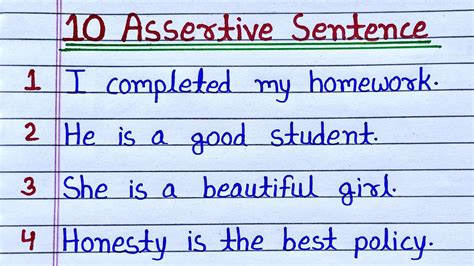 10 Assertive Sentence
1 I completed my homework.
2 He is a good student.
3 She is a beautiful girl.
4 Honesty is the best policy.